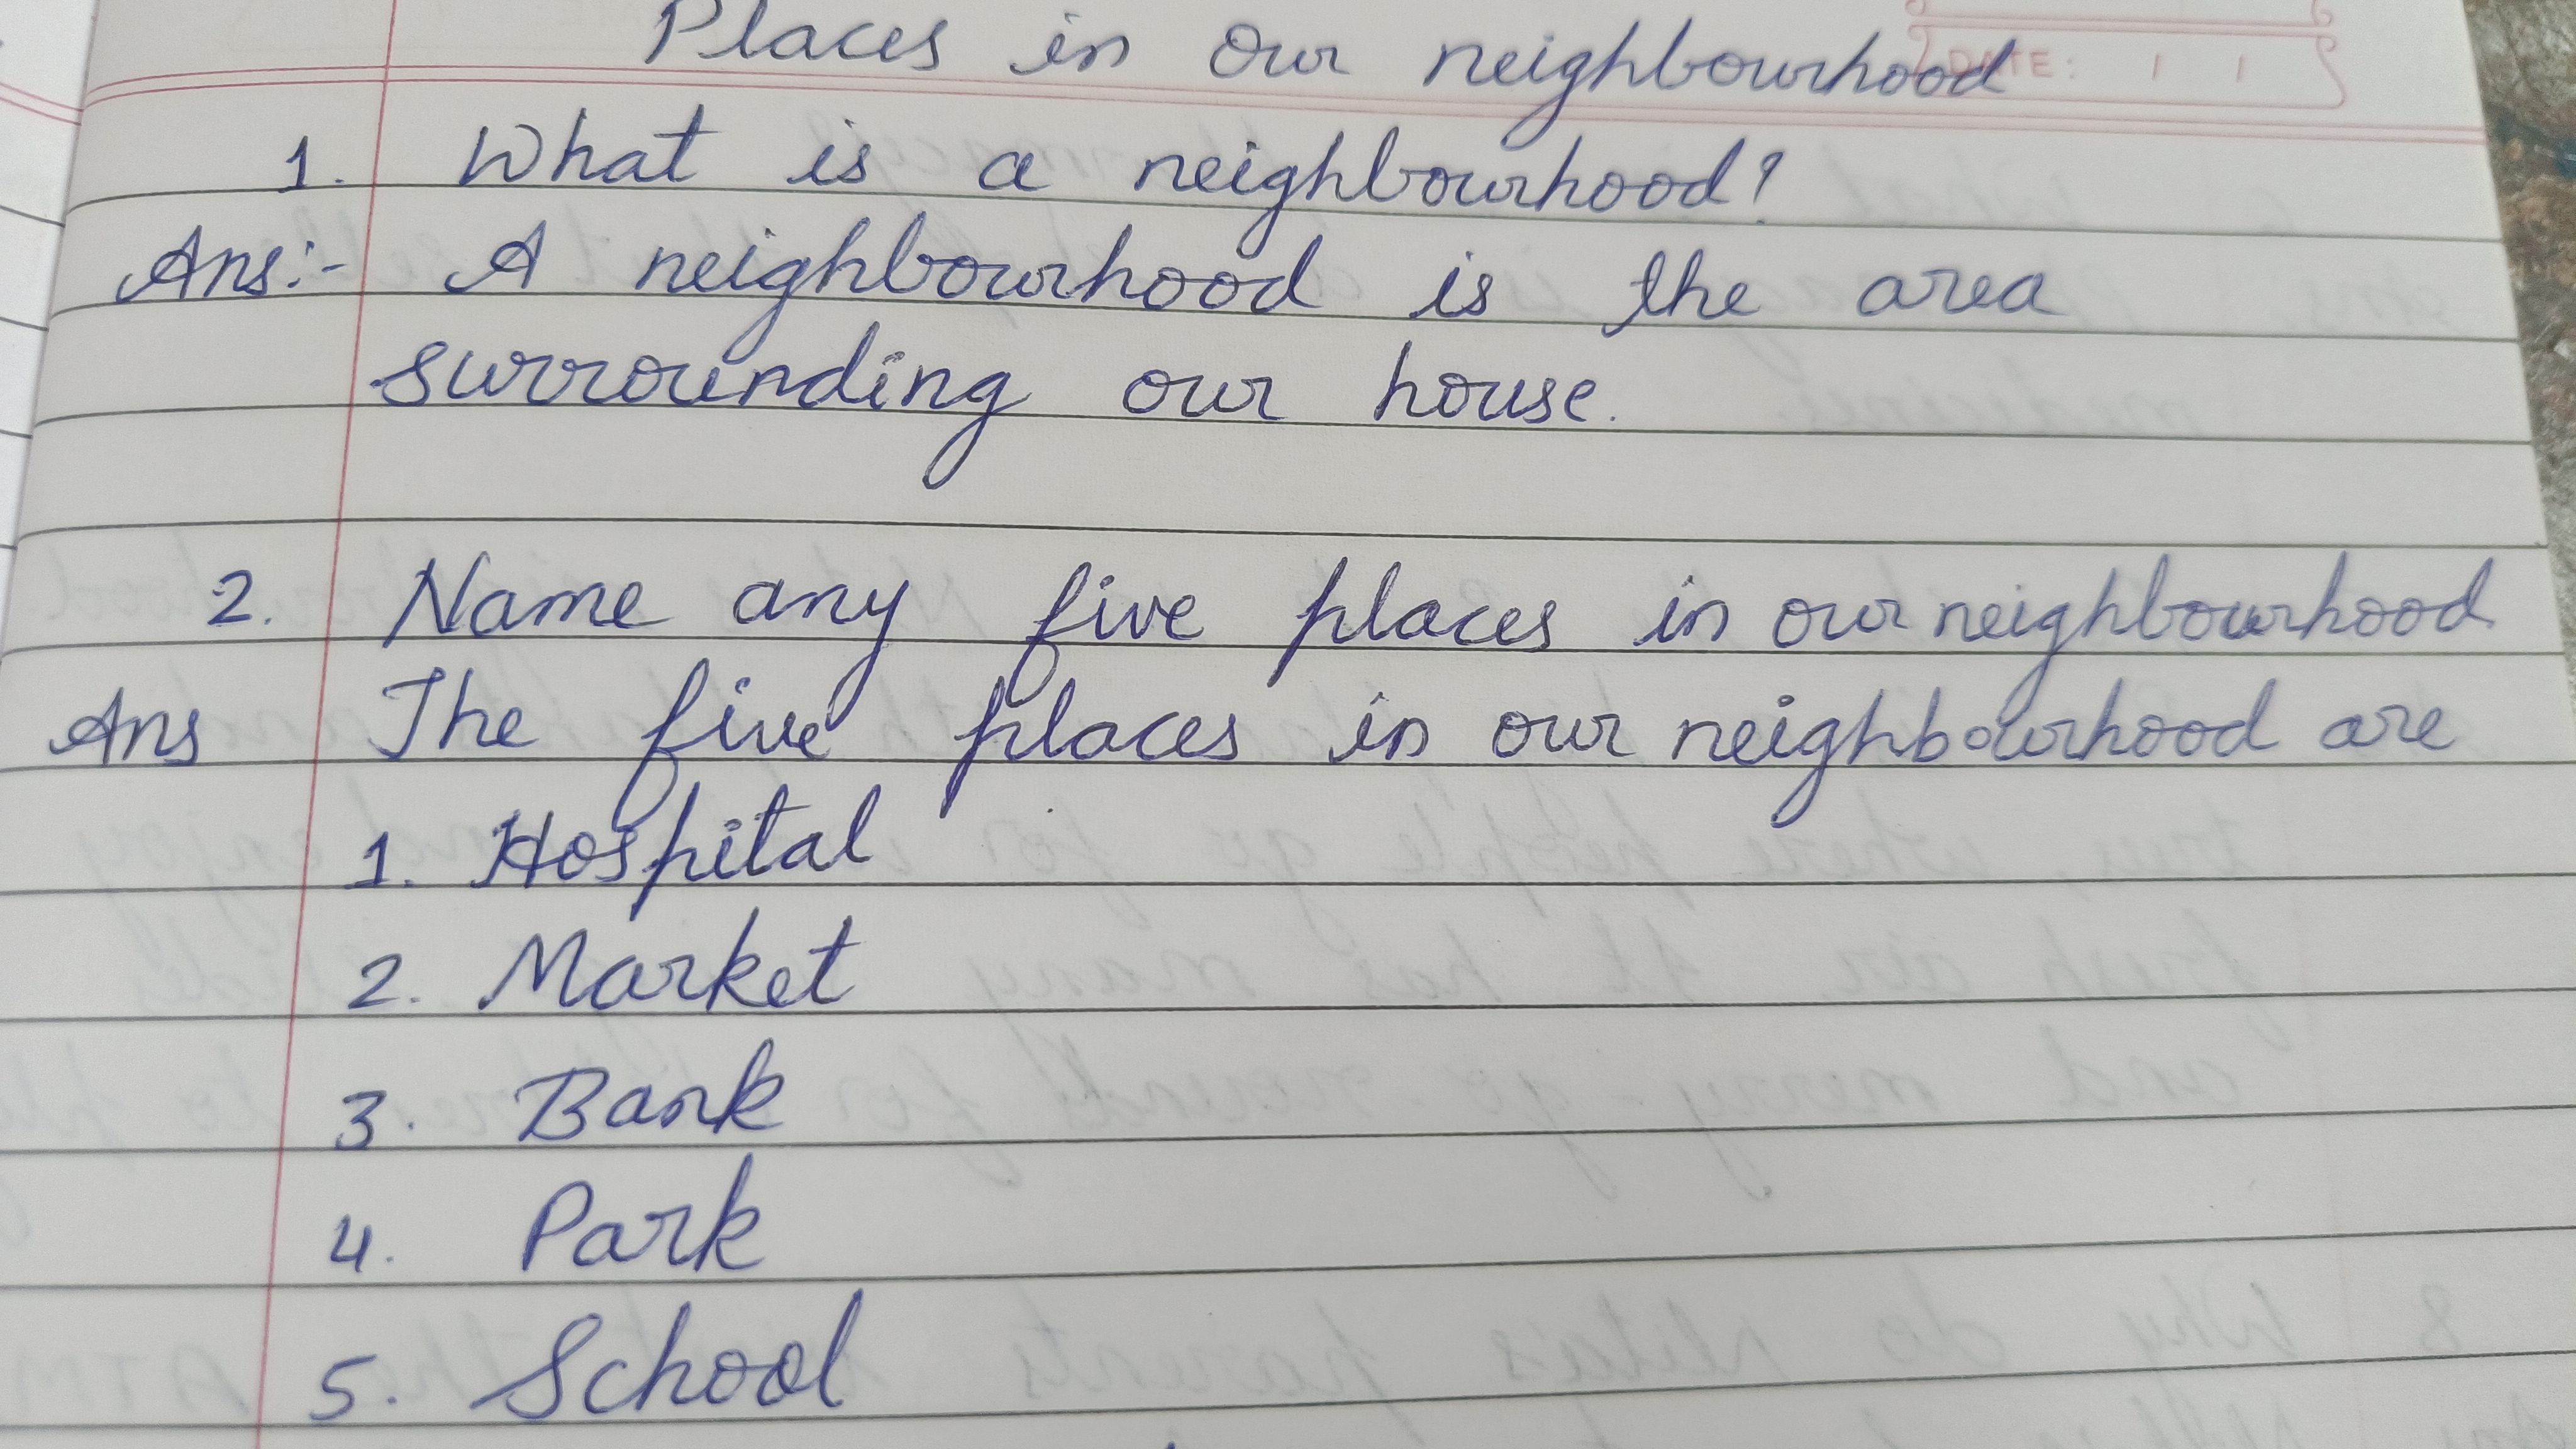 Places in our neighbourhood
DATE: / /
1. What is a neighbourhood?
Ans:- A neighbourhood is the area
surrounding our house.
2. Name any five places in our neighbourhood
Ans The five places in our neighbourhood are
1. Hospital
2. Market
3. Bank
4. Park
5. School